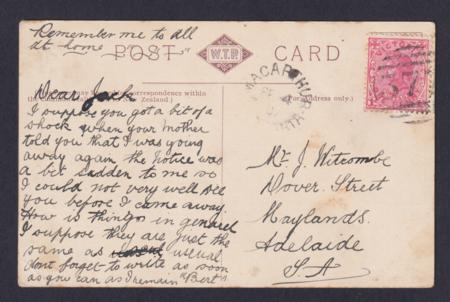 Remember me to all
at home
POST W.T.P. CARD
correspondence within
Zealand) For address only.)
MACARTHUR
VICTORIA
Dear Jack
I suppose you got a bit of a
shock when your mother
told you that I was going
away again the notice was
a bit sudden to me so
I could not very well see
you before I came away.
How is things in general
I suppose they are just the
same as usual
dont forget to write as soon
as you can as I remain "Bert"
Mr. J. Witcombe
Dover. Street
Maylands.
Adelaide
S.A